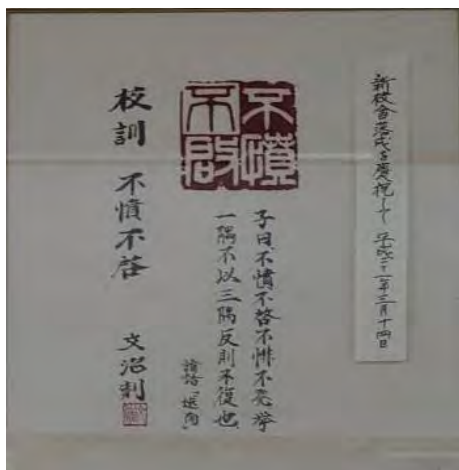 新校舎落成を慶祝して 平成二十一年三月十四日
不憤
不啓
子曰、不憤不啓不悱不発挙
一隅不以三隅反則不復也
論語「述而」
校訓 不憤不啓 文治刻